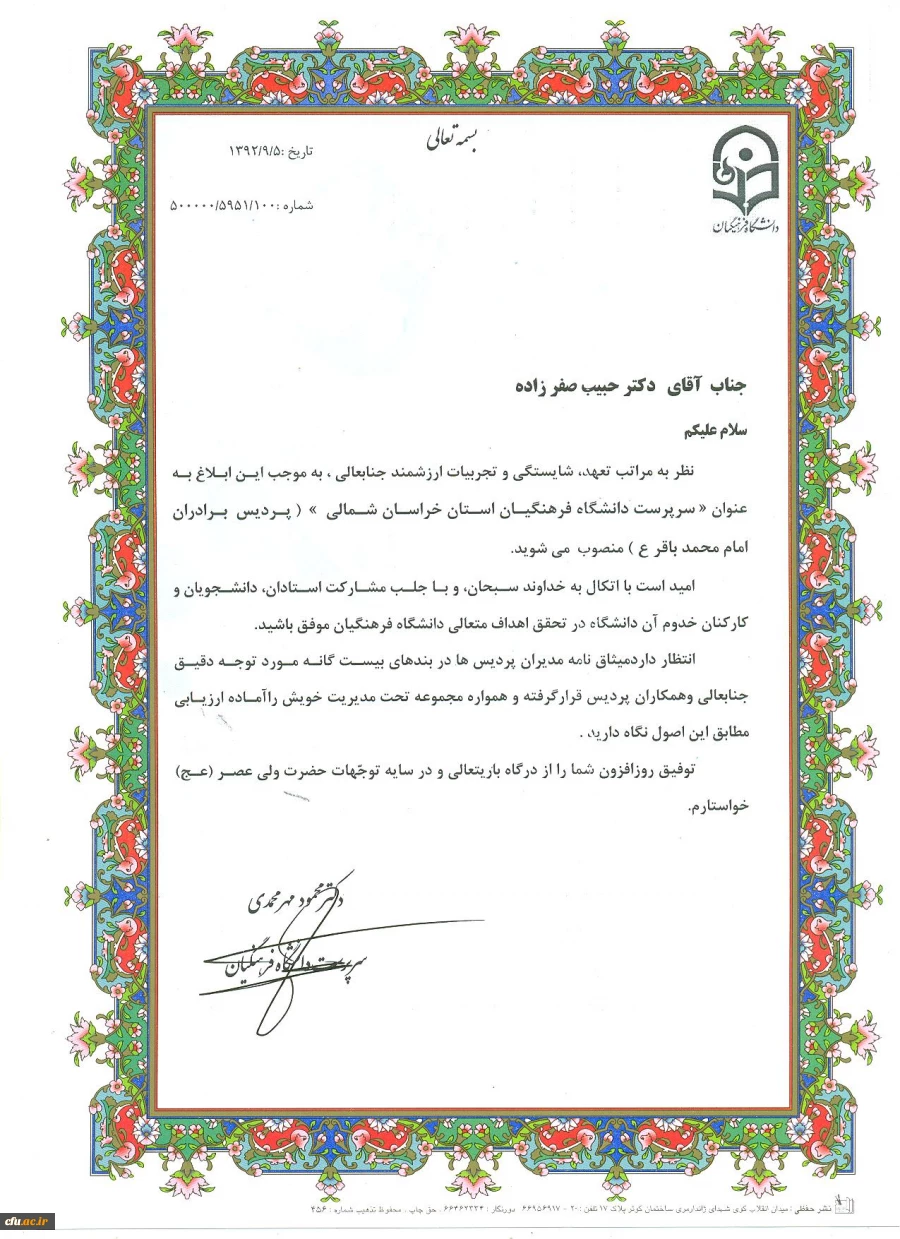 بسمه تعالی
تاریخ :۱۳۹۲/۹/۵
شماره :۵۰۰۰۰۰/۵۹۵۱/۱۰۰
دانشگاه فرهنگیان
جناب آقای دکتر حبیب صفر زاده
سلام علیکم
نظر به مراتب تعهد، شایستگی و تجربیات ارزشمند جنابعالی ، به موجب این ابلاغ به
عنوان « سرپرست دانشگاه فرهنگیان استان خراسان شمالی » ( پردیس برادران
امام محمد باقر ع ) منصوب می شوید.
امید است با اتکال به خداوند سبحان، و با جلب مشارکت استادان، دانشجویان و
کارکنان خدوم آن دانشگاه در تحقق اهداف متعالی دانشگاه فرهنگیان موفق باشید.
انتظار داردمیثاق نامه مدیران پردیس ها در بندهای بیست گانه مورد توجه دقیق
جنابعالی وهمکاران پردیس قرارگرفته و همواره مجموعه تحت مدیریت خویش راآماده ارزیابی
مطابق این اصول نگاه دارید .
توفیق روزافزون شما را از درگاه باریتعالی و در سایه توجّهات حضرت ولی عصر (عج)
خواستارم.
دکتر محمود مهرمحمدی
سرپرست دانشگاه فرهنگیان
نشر حفظی : میدان انقلاب کوی شهدای ژاندارمری ساختمان کوثر پلاک ۱۷ تلفن : ۲۰ - ۶۶۹۵۶۹۱۷ دورنگار : ۶۶۴۶۲۳۳۴ ، حق چاپ ، محفوظ تذهیب شماره : ۴۵۶
cfu.ac.ir